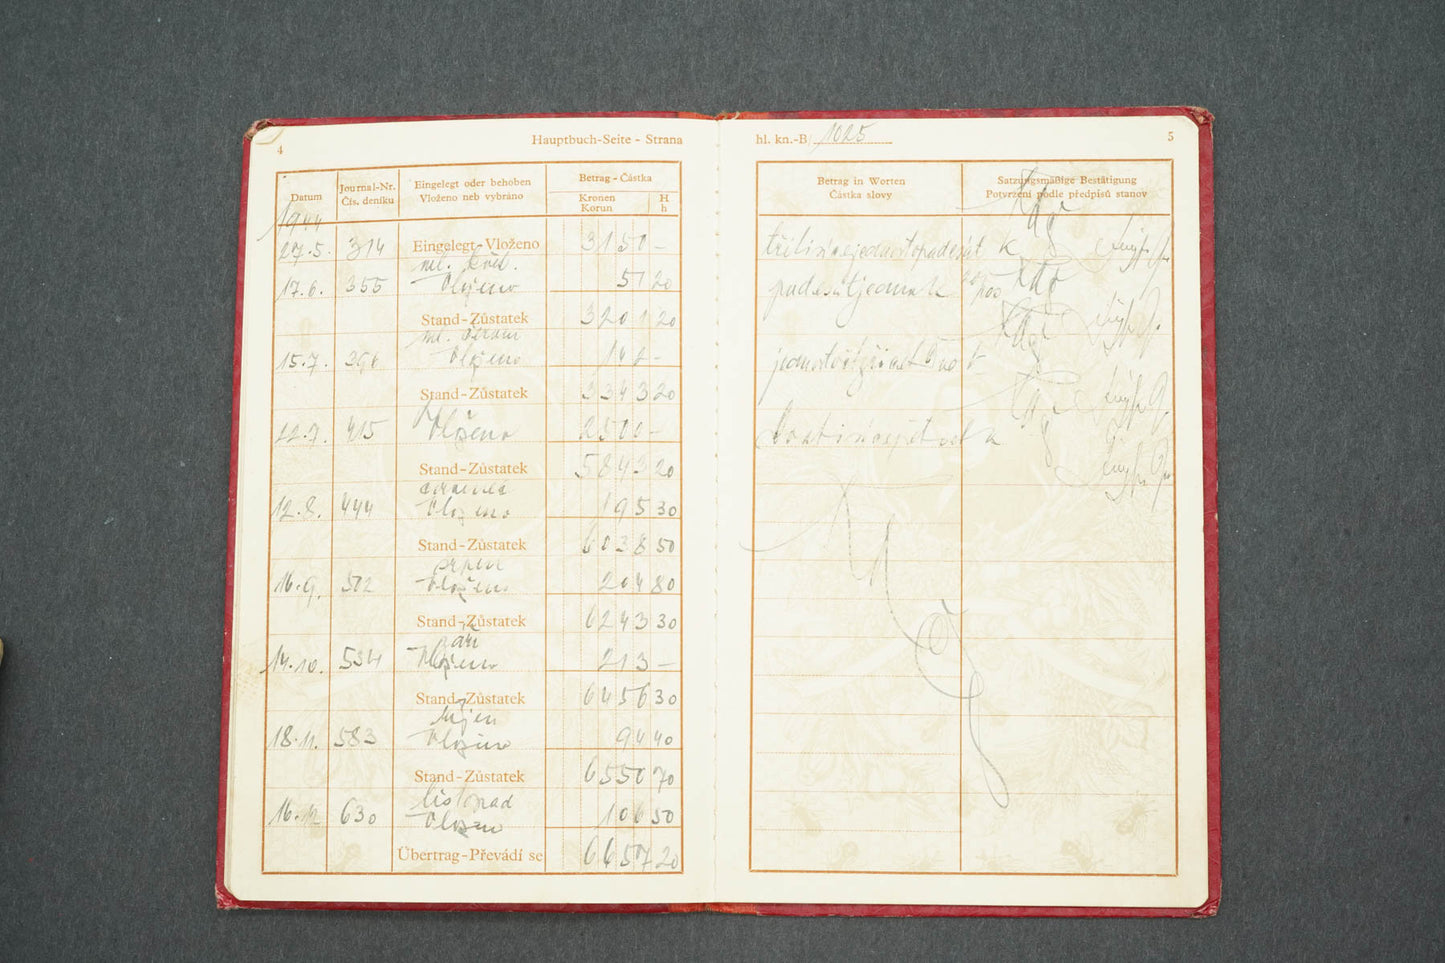 4
Hauptbuch-Seite - Strana
Datum
Journal-Nr.
Čís. deníku
Eingelegt oder behoben
Vloženo neb vybráno
Betrag - Částka
Kronen
Korun
H
h
1944
27.5. 314 Eingelegt-Vloženo 3150 -
ml. květ.
17.6. 355 Vloženo 51 20
Stand-Zůstatek 3201 20
15.7. 396 Vloženo 142 -
Stand-Zůstatek 3343 20
415 Vloženo 2500 -
Stand-Zůstatek 5843 20
12.8. 444 Vloženo 195 30
Stand-Zůstatek 6038 50
srpen
16.9. 502 Vloženo 204 80
Stand-Zůstatek 6243 30
září
14.10. 534 Vloženo 213 -
Stand-Zůstatek 6456 30
říjen
18.11. 583 Vloženo 94 40
Stand-Zůstatek 6550 70
listopad
16.12 630 Vloženo 106 50
Übertrag-Převádí se 6657 20
hl. kn.-B/ 1025
5
Betrag in Worten
Částka slovy
Satzungsmäßige Bestätigung
Potvrzení podle předpisů stanov
třitisícejednostopadesát K
padesátjedna K